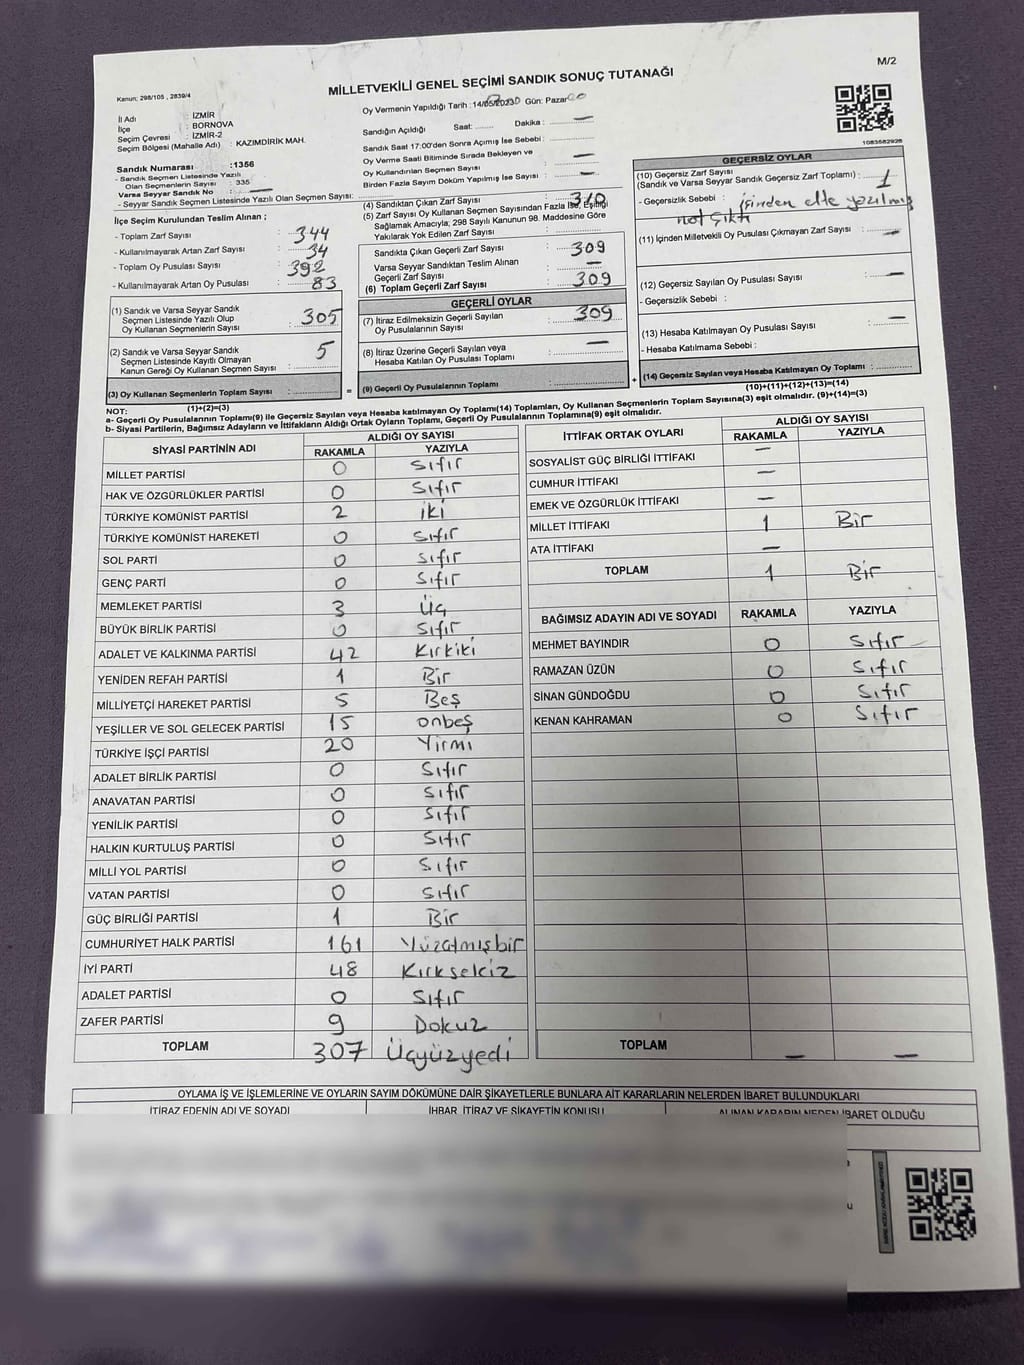 M/2
MİLLETVEKİLİ GENEL SEÇİMİ SANDIK SONUÇ TUTANAĞI
Kanun: 298/105 , 2839/4
İl Adı : İZMİR
İlçe : BORNOVA
Seçim Çevresi : İZMİR-2
Seçim Bölgesi (Mahalle Adı) : KAZIMDİRİK MAH.
Sandık Numarası :1356
- Sandık Seçmen Listesinde Yazılı
Olan Seçmenlerin Sayısı : 335
Varsa Seyyar Sandık No : —
- Seyyar Sandık Seçmen Listesinde Yazılı Olan Seçmen Sayısı:
İlçe Seçim Kurulundan Teslim Alınan ;
- Toplam Zarf Sayısı : 344
- Kullanılmayarak Artan Zarf Sayısı : 34
- Toplam Oy Pusulası Sayısı : 392
- Kullanılmayarak Artan Oy Pusulası : 83
(1) Sandık ve Varsa Seyyar Sandık
Seçmen Listesinde Yazılı Olup
Oy Kullanan Seçmenlerin Sayısı : 305
(2) Sandık ve Varsa Seyyar Sandık
Seçmen Listesinde Kayıtlı Olmayan
Kanun Gereği Oy Kullanan Seçmen Sayısı : 5
(3) Oy Kullanan Seçmenlerin Toplam Sayısı :
(1)+(2)=(3)
Oy Vermenin Yapıldığı Tarih : 14/05/2023 Gün: Pazar
Sandığın Açıldığı Saat: ........ Dakika : —
Sandık Saat 17:00'den Sonra Açılmış İse Sebebi :
Oy Verme Saati Bitiminde Sırada Bekleyen ve
Oy Kullandırılan Seçmen Sayısı : —
Birden Fazla Sayım Döküm Yapılmış İse Sayısı : —
(4) Sandıktan Çıkan Zarf Sayısı : 310
(5) Zarf Sayısı Oy Kullanan Seçmen Sayısından Fazla İse, Eşitliği
Sağlamak Amacıyla; 298 Sayılı Kanunun 98. Maddesine Göre
Yakılarak Yok Edilen Zarf Sayısı :
Sandıkta Çıkan Geçerli Zarf Sayısı : 309
Varsa Seyyar Sandıktan Teslim Alınan
Geçerli Zarf Sayısı : —
(6) Toplam Geçerli Zarf Sayısı : 309
GEÇERLİ OYLAR
(7) İtiraz Edilmeksizin Geçerli Sayılan
Oy Pusulalarının Sayısı : 309
(8) İtiraz Üzerine Geçerli Sayılan veya
Hesaba Katılan Oy Pusulası Toplamı : —
= (9) Geçerli Oy Pusulalarının Toplamı :
1083682928
GEÇERSİZ OYLAR
(10) Geçersiz Zarf Sayısı
(Sandık ve Varsa Seyyar Sandık Geçersiz Zarf Toplamı) : 1
- Geçersizlik Sebebi : içinden elle yazılmış
not çıktı
(11) İçinden Milletvekili Oy Pusulası Çıkmayan Zarf Sayısı : —
(12) Geçersiz Sayılan Oy Pusulası Sayısı : —
- Geçersizlik Sebebi :
(13) Hesaba Katılmayan Oy Pusulası Sayısı : —
- Hesaba Katılmama Sebebi :
+ (14) Geçersiz Sayılan veya Hesaba Katılmayan Oy Toplamı :
(10)+(11)+(12)+(13)=(14)
NOT:
a- Geçerli Oy Pusulalarının Toplamı(9) ile Geçersiz Sayılan veya Hesaba katılmayan Oy Toplamı(14) Toplamları, Oy Kullanan Seçmenlerin Toplam Sayısına(3) eşit olmalıdır. (9)+(14)=(3)
b- Siyasi Partilerin, Bağımsız Adayların ve İttifakların Aldığı Ortak Oyların Toplamı, Geçerli Oy Pusulalarının Toplamına(9) eşit olmalıdır.
SİYASİ PARTİNİN ADI ALDIĞI OY SAYISI
RAKAMLA YAZIYLA
MİLLET PARTİSİ 0 Sıfır
HAK VE ÖZGÜRLÜKLER PARTİSİ 0 Sıfır
TÜRKİYE KOMÜNİST PARTİSİ 2 iki
TÜRKİYE KOMÜNİST HAREKETİ 0 Sıfır
SOL PARTİ 0 Sıfır
GENÇ PARTİ 0 Sıfır
MEMLEKET PARTİSİ 3 Üç
BÜYÜK BİRLİK PARTİSİ 0 Sıfır
ADALET VE KALKINMA PARTİSİ 42 Kırkiki
YENİDEN REFAH PARTİSİ 1 Bir
MİLLİYETÇİ HAREKET PARTİSİ 5 Beş
YEŞİLLER VE SOL GELECEK PARTİSİ 15 onbeş
TÜRKİYE İŞÇİ PARTİSİ 20 Yirmi
ADALET BİRLİK PARTİSİ 0 Sıfır
ANAVATAN PARTİSİ 0 Sıfır
YENİLİK PARTİSİ 0 Sıfır
HALKIN KURTULUŞ PARTİSİ 0 Sıfır
MİLLİ YOL PARTİSİ 0 Sıfır
VATAN PARTİSİ 0 Sıfır
GÜÇ BİRLİĞİ PARTİSİ 1 Bir
CUMHURİYET HALK PARTİSİ 161 Yüzatmışbir
İYİ PARTİ 48 Kırksekiz
ADALET PARTİSİ 0 Sıfır
ZAFER PARTİSİ 9 Dokuz
TOPLAM 307 Üçyüzyedi
İTTİFAK ORTAK OYLARI ALDIĞI OY SAYISI
RAKAMLA YAZIYLA
SOSYALİST GÜÇ BİRLİĞİ İTTİFAKI —
CUMHUR İTTİFAKI —
EMEK VE ÖZGÜRLÜK İTTİFAKI —
MİLLET İTTİFAKI 1 Bir
ATA İTTİFAKI —
TOPLAM 1 Bir
BAĞIMSIZ ADAYIN ADI VE SOYADI RAKAMLA YAZIYLA
MEHMET BAYINDIR 0 Sıfır
RAMAZAN ÜZÜN 0 Sıfır
SİNAN GÜNDOĞDU 0 Sıfır
KENAN KAHRAMAN 0 Sıfır
TOPLAM — —
OYLAMA İŞ VE İŞLEMLERİNE VE OYLARIN SAYIM DÖKÜMÜNE DAİR ŞİKAYETLERLE BUNLARA AİT KARARLARIN NELERDEN İBARET BULUNDUKLARI
İTİRAZ EDENİN ADI VE SOYADI İHBAR, İTİRAZ VE ŞİKAYETİN KONUSU ALINAN KARARIN NEDEN İBARET OLDUĞU